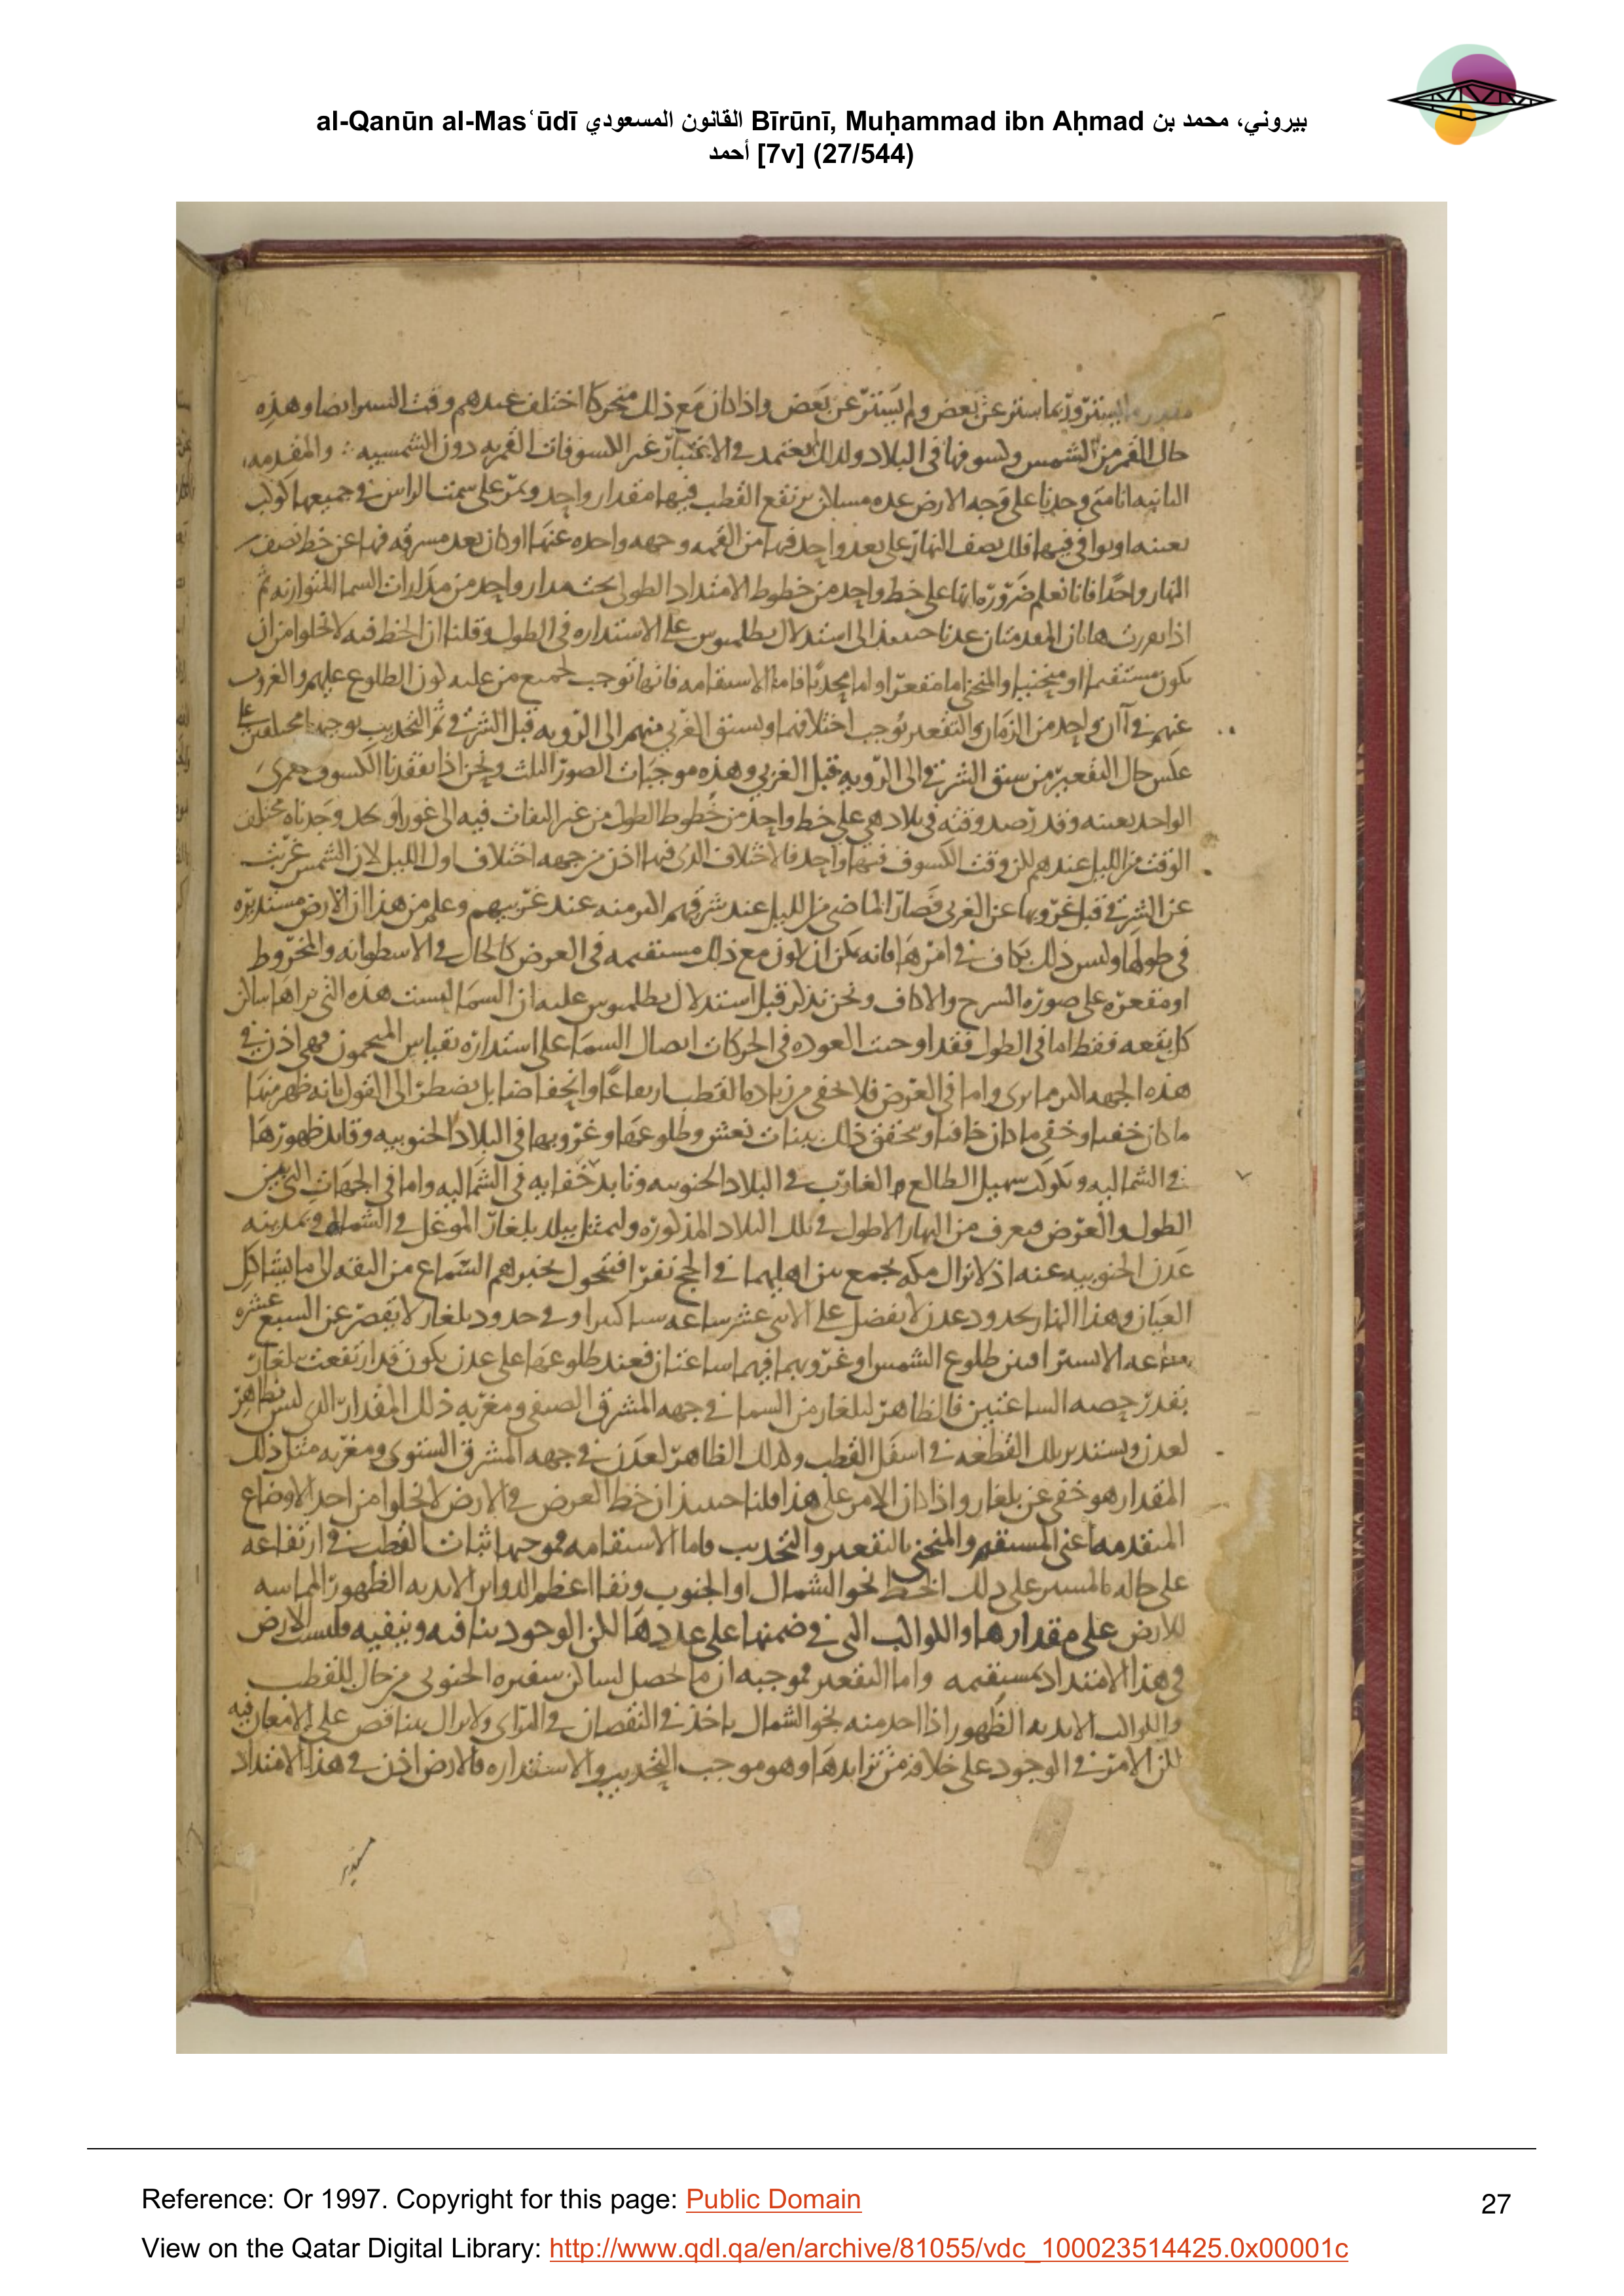 al-Qanūn al-Masʿūdī القانون المسعودي Bīrūnī, Muḥammad ibn Aḥmad بيروني، محمد بن
أحمد [7v] (27/544)
يستتر وربما استتر عن بعض ولم يستتر عن بعض واذا كان مع ذلك متحركا اختلف عندهم وقت الستر ايضا وهذه
حال القمر من الشمس وكسوفها فى البلاد ولذلك يعتمد فى الاعتبار غير الكسوفات القمريه دون الشمسيه والمقدمه
الثانيه انا متى وجدنا على وجه الارض عده مساكن يرتفع القطب فيها مقدار واحد ويمر على سمت الراس فى جميعها كوكب
بعينه او يوافى فيها فلك نصف النهار على بعد واحد فيها من القمه وجهه واحده عنها او كان بعد مشرقه فيها عن خط نصف
النهار واحدا فانا نعلم ضروره انها على خط واحد من خطوط الامتداد الطولى تحت مدار واحد من مدارات السما المتوازيه ثم
اذا تقررت هاتان المقدمتان عدنا حينئذ الى استدلال بطلميوس على الاستداره فى الطول وقلنا ان الخط فيه لا يخلوا من ان
يكون مستقيما او منحنيا والمنحنى اما مقعرا واما محدبا فاما الاستقامه فانها توجب لجميع من عليه كون الطلوع عليهم والغروب
عنهم فى آن واحد من الزمان والتقعير يوجب اختلافهما ويسبق الغربى منهم الى الرويه قبل الشرقى ثم التحديب يوجبها مختلفين على
عكس حال التقعير من سبق الشرقى الى الرويه قبل الغربى وهذه موجبات الصور الثلث ونحن اذا تفقدنا الكسوف القمرى
الواحد بعينه وقد رصد وقته فى بلاد هى على خط واحد من خطوط الطول من غير التفات فيه الى غور او كد وجدناه مختلف
الوقت من الليل عندهم لكن وقت الكسوف فيها واحد فالاختلاف الذى فيها اذن من جهه اختلاف اول الليل لان الشمس غربت
عن الشرقى قبل غروبها عن الغربى فصار الماضى من الليل عند شرقهم اكثر منه عند غربيهم وعلم من هذا ان الارض مستديره
فى طولها وليس ذلك بكاف فى امرها فانه يمكن ان يكون مع ذلك مستقيمه فى العرض كالحال فى الاسطوانه والمخروط
او مقعره على صوره السرج والاكاف ونحن نذكر قبل استدلال بطلميوس عليه ان السما ليست هذه التى يراها ساكن
كل بقعه فقط اما فى الطول فقد اوجبت العوده فى الحركات اتصال السما على استداره بقياس المنجمون فهى اذن فى
هذه الجهه اكثر مما يرى واما فى العرض فلا يخفى من زياده القطب ارتفاعا وانخفاضا بل يضطر الى القول بانه ظهر منها
ما كان خفيا وخفى ما كان خافيا وتحقق ذلك ببنات نعش وطلوعها وغروبها فى البلاد الجنوبيه وتابد ظهورها
فى الشماليه وبكوكب سهيل الطالع والغارب فى البلاد الجنوبيه وتابد خفايه فى الشماليه واما فى الجهات التى بين
الطول والعرض فيعرف من النهار الاطول فى تلك البلاد المذكوره وليمثل ببلد بلغار الموغل فى الشمال وبمدينه
عدن الجنوبيه عنه اذ لا تزال مكه تجمع بين اهليهما فى الحج نفرا فيتحول بخبرهم السماع من الثقه الى ما يشاكل
العيان وهذا النهار بحدود عدن لا يفضل على الاثنى عشر ساعه شيا كثيرا وفى حدود بلغار لا يقصر عن السبع عشره
ساعه الا يسيرا فبين طلوع الشمس او غروبهما فيهما ساعتان فعند طلوعها على عدن يكون قد ارتفعت ببلغار
بقدر حصه الساعتين فالظاهر لبلغار من السما فى جهه المشرق الصيفى ومغربه ذلك المقدار الذى ليس بظاهر
لعدن ويستدير بتلك القطعه فى اسفل القطب وكذلك الظاهر لعدن فى جهه المشرق الشتوى ومغربه مثل ذلك
المقدار هو خفى عن بلغار واذا كان الامر على هذا قلنا حينئذ ان خط العرض فى الارض لا يخلوا من احد الاوضاع
المتقدمه اعنى المستقيم والمنحنى بالتقعير والتحديب فاما الاستقامه فموجبها ثبات القطب فى ارتفاعه
على حاله بالمسير على ذلك الخط نحو الشمال او الجنوب وبقا اعظم الدواير الابديه الظهور المماسه
للارض على مقدارها والكواكب التى فى ضمنها على عددها لكن الوجود ينافيه وينفيه فليست الارض
فى هذا الامتداد بمستقيمه واما التقعير فموجبه ان ما حصل لساكن شفيره الجنوبى من حال للقطب
والكواكب الابديه الظهور اذا اخذ منه نحو الشمال ياخذ فى النقصان فى المراى ولا يزال يتناقص على الامعان فيه
لكن الامر فى الوجود على خلافه من تزايدها وهو موجب التحديب والاستداره فالارض اذن فى هذا الامتداد
Reference: Or 1997. Copyright for this page: Public Domain
27
View on the Qatar Digital Library: http://www.qdl.qa/en/archive/81055/vdc_100023514425.0x00001c